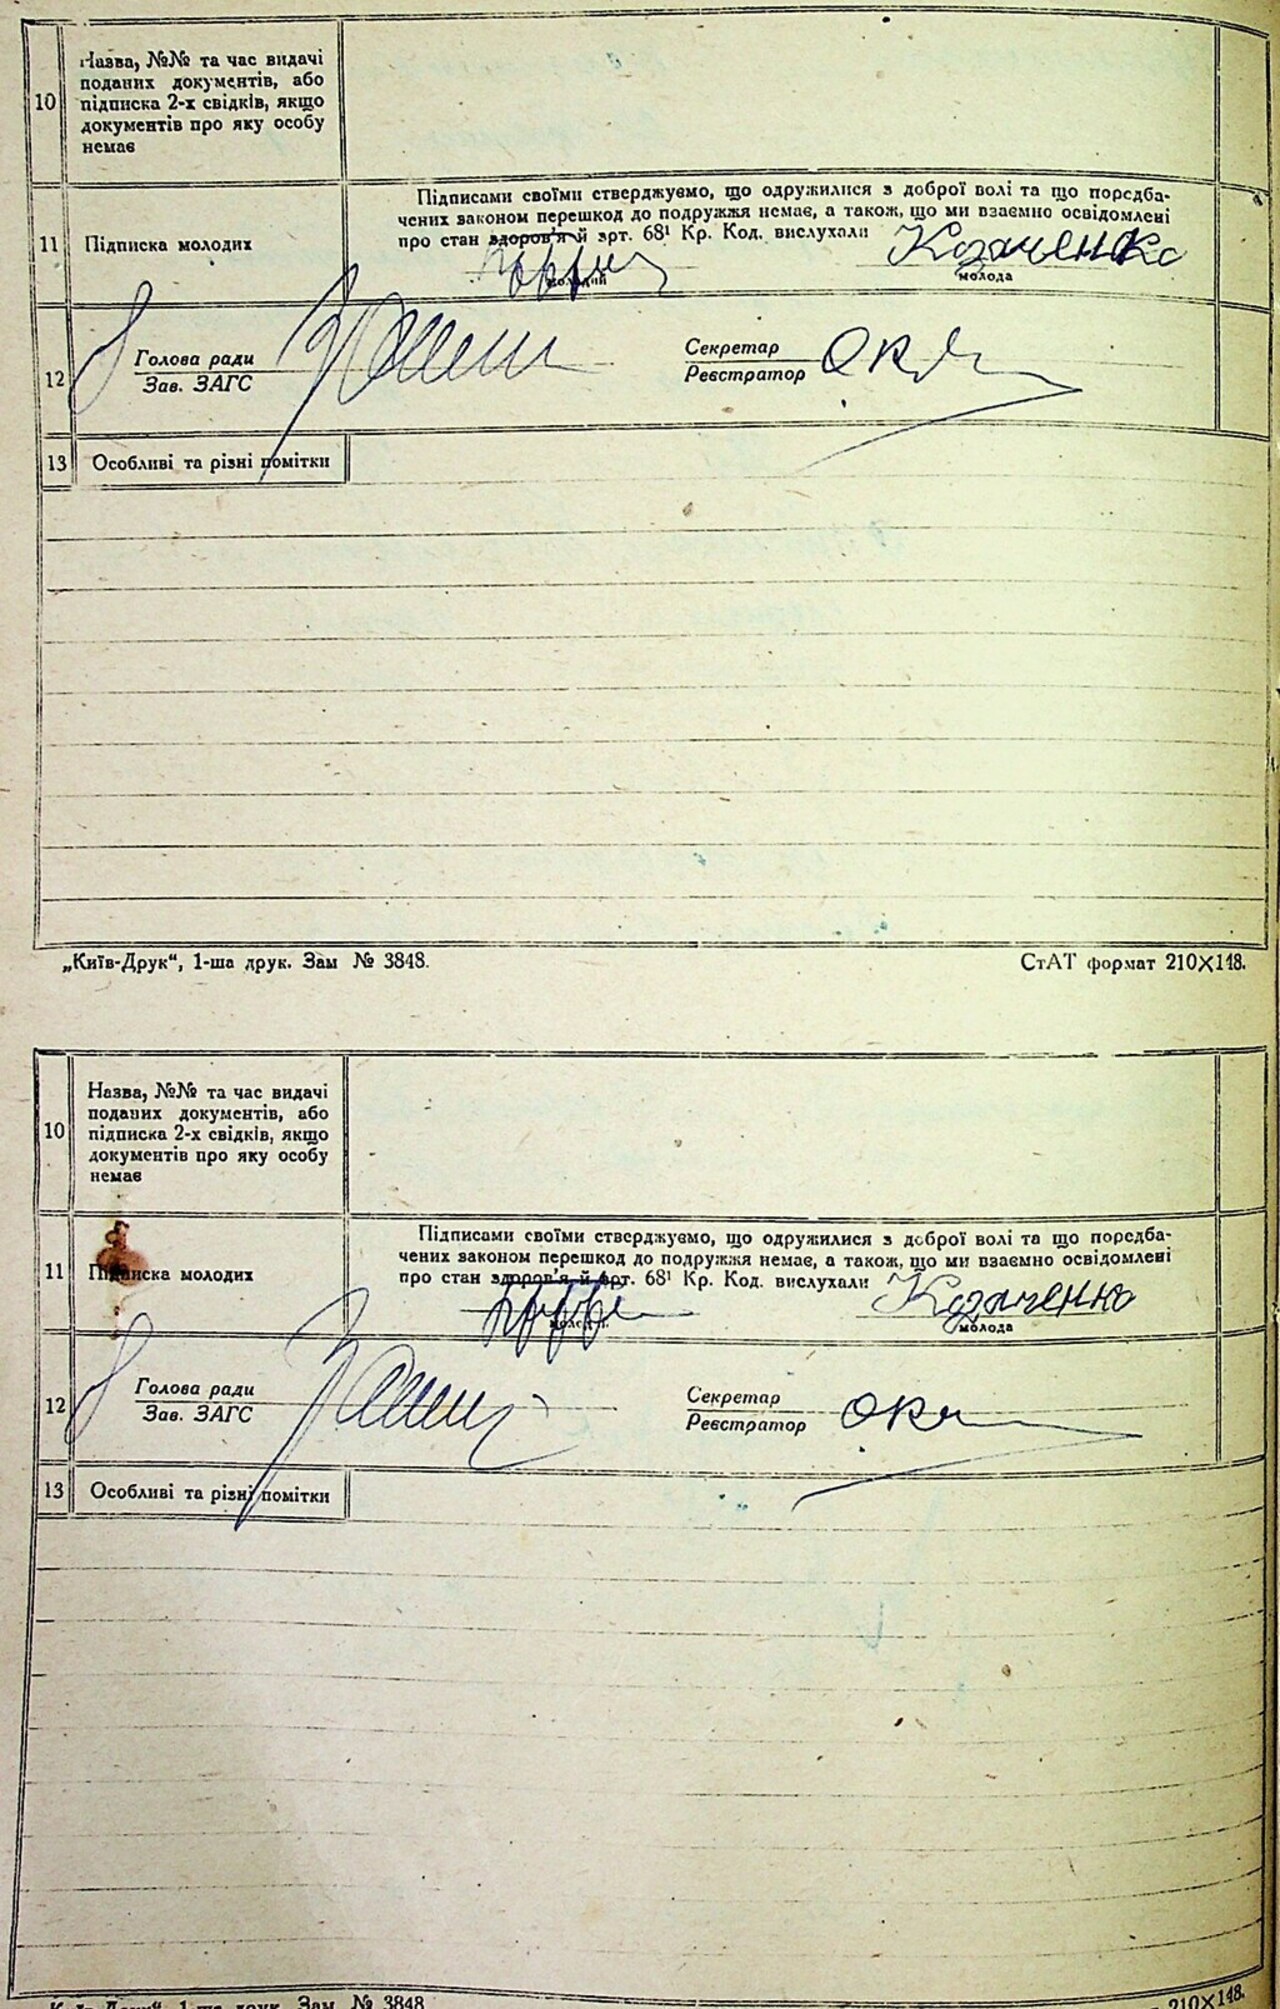 10
Назва, №№ та час видачі
поданих документів, або
підписка 2-х свідків, якщо
документів про яку особу
немає
11
Підписка молодих
Підписами своїми стверджуємо, що одружилися з доброї волі та що передба-
чених законом перешкод до подружжя немає, а також, що ми взаємно освідомлені
про стан здоров'я й арт. 68¹ Кр. Код. вислухали
Козаченко
молодий
молода
12
Голова ради
Зав. ЗАГС
Секретар
Реєстратор
13
Особливі та різні помітки
„Київ-Друк“, 1-ша друк. Зам № 3848.
СтАТ формат 210×148.
10
Назва, №№ та час видачі
поданих документів, або
підписка 2-х свідків, якщо
документів про яку особу
немає
11
Підписка молодих
Підписами своїми стверджуємо, що одружилися з доброї волі та що передба-
чених законом перешкод до подружжя немає, а також, що ми взаємно освідомлені
про стан здоров'я й арт. 68¹ Кр. Код. вислухали
Козаченко
молодий
молода
12
Голова ради
Зав. ЗАГС
Секретар
Реєстратор
13
Особливі та різні помітки
„Київ-Друк“, 1-ша друк. Зам. № 3848
210×148.